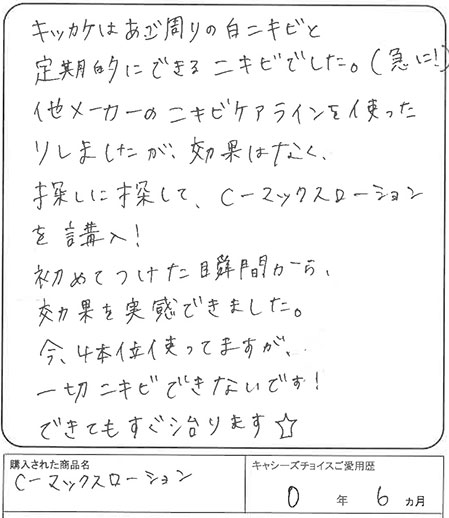 キッカケはあご周りの白ニキビと
定期的にできるニキビでした。(急に!)
他メーカーのニキビケアラインを使った
りしましたが、効果はなく、
探しに探して、Cーマックスローション
を購入!
初めてつけた瞬間から、
効果を実感できました。
今、4本位使ってますが、
一切ニキビできないです!
できてもすぐ治ります☆
購入された商品名
Cーマックスローション
キャシーズチョイスご愛用歴
0年6ヵ月